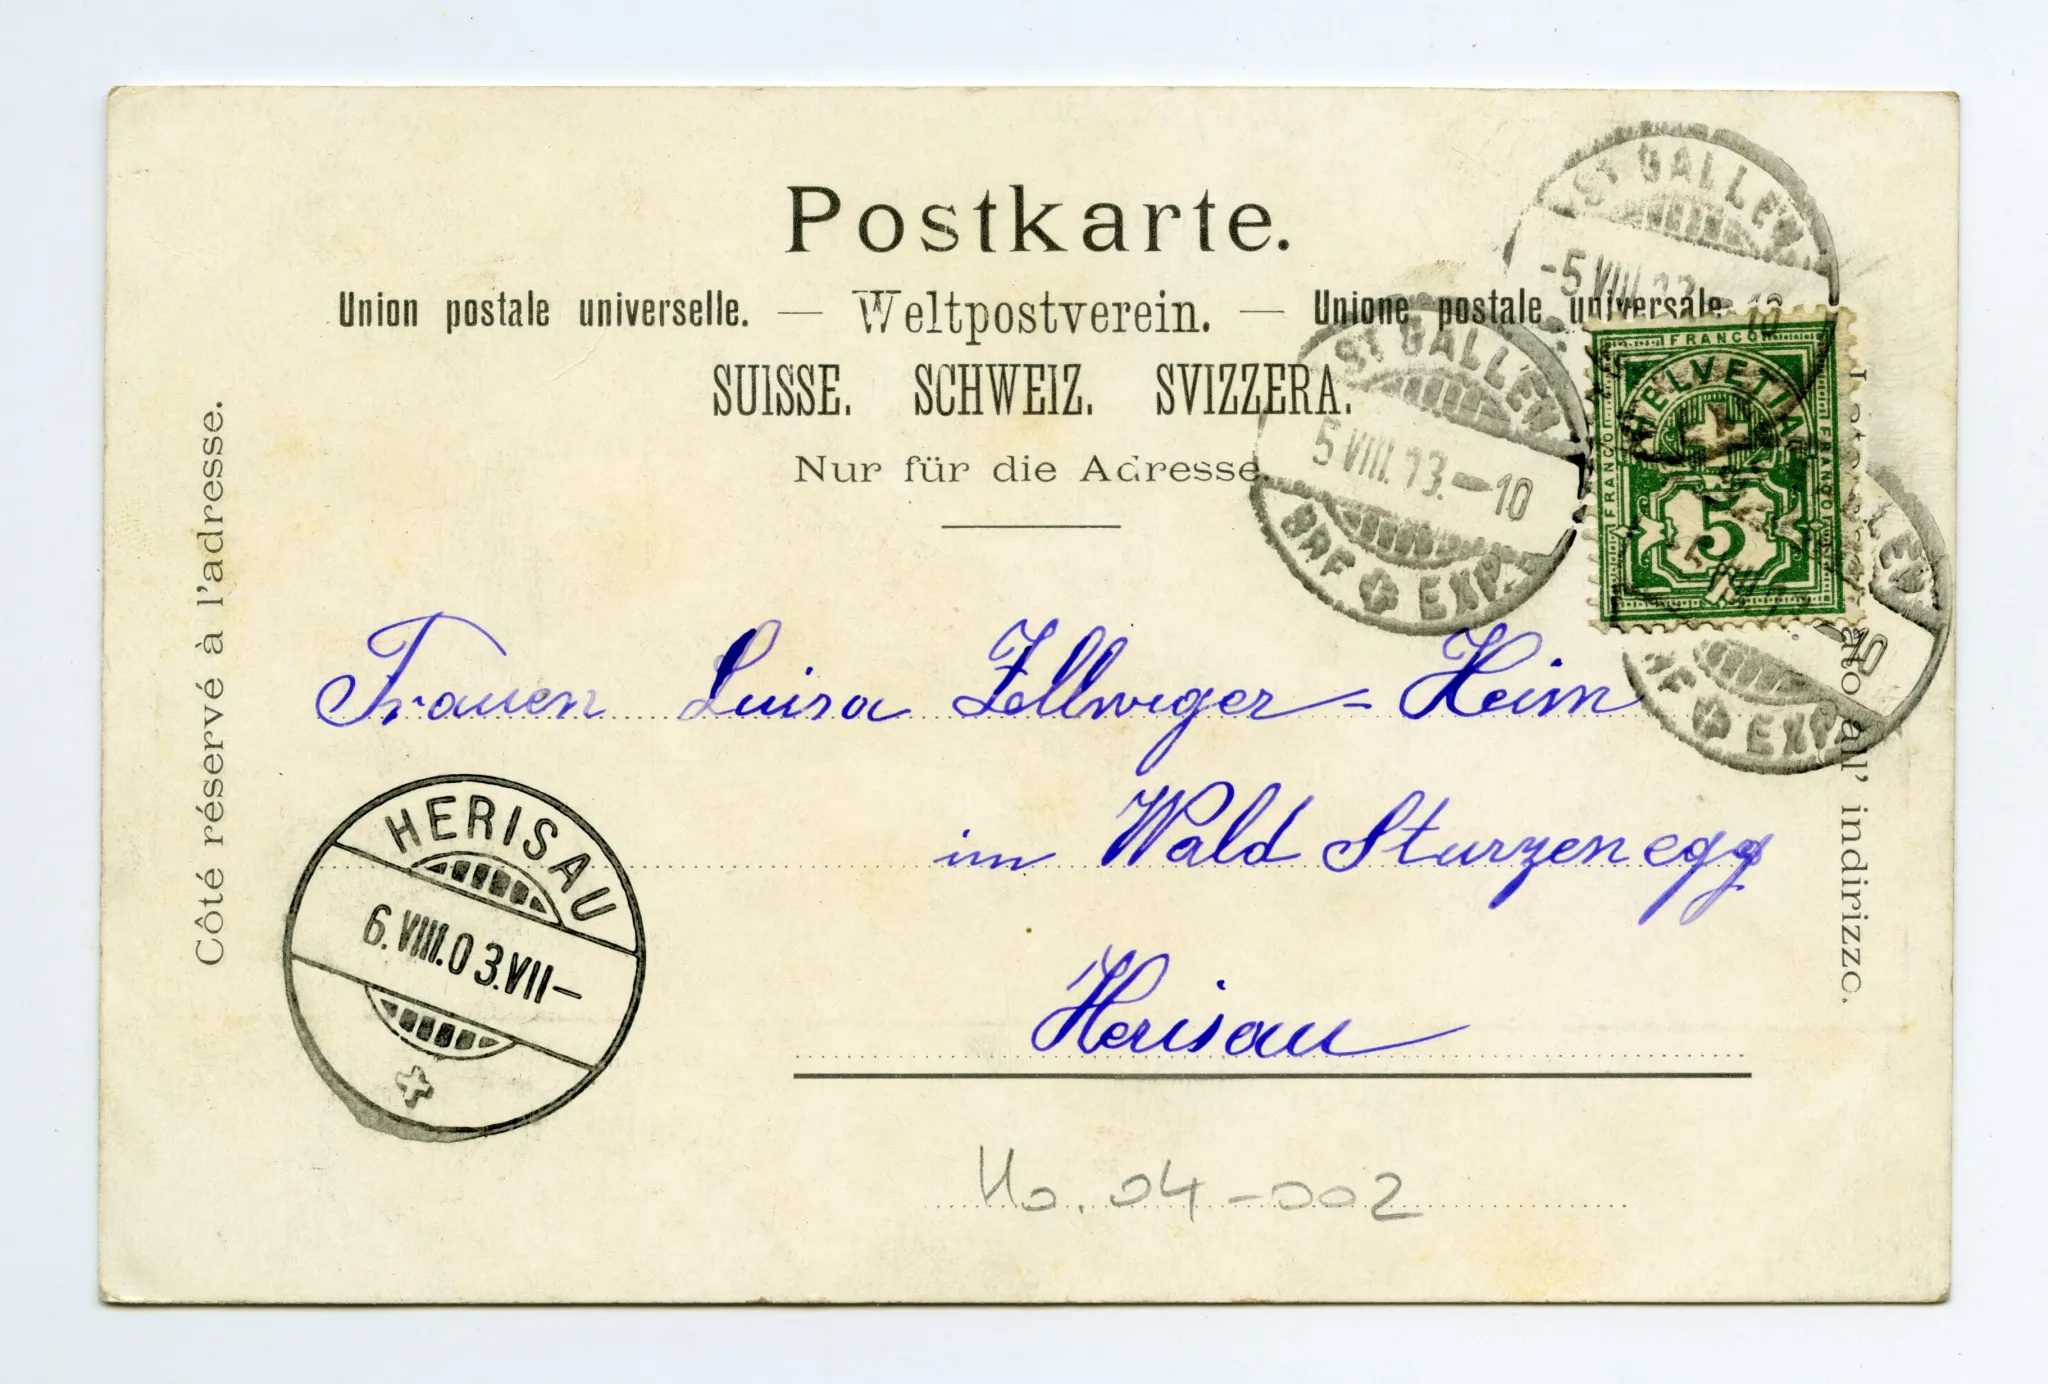 Postkarte.
Union postale universelle. — Weltpostverein. — Unione postale universale
SUISSE. SCHWEIZ. SVIZZERA.
Nur für die Adresse.
Côté réservé à l'adresse.
all' indirizzo.
ST GALLEN
-5 VIII 10
ST GALLEN
5 VIII. 13.-10
BRF EXP.
FRANCO
HELVETIA
FRANCO
FRANCO
5
10
BRF EXP.
Frauen Luisa Zellweger-Heim
im Wald Sturzenegg
Herisau
HERISAU
6.VIII.03.VII-
No. 04-002